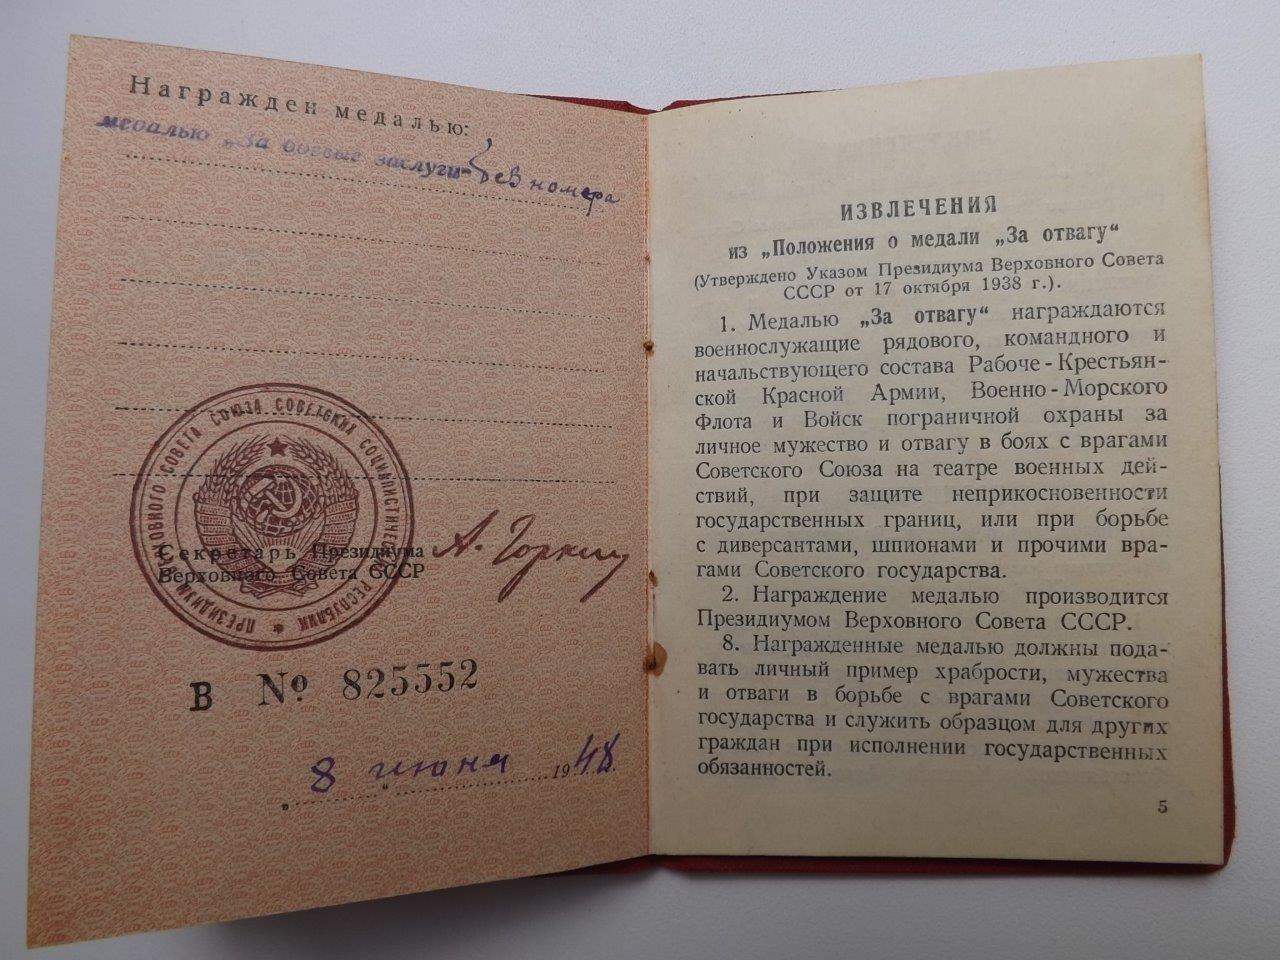 Награжден медалью:
медалью „За боевые заслуги- без номера
ПРЕЗИДИУМ ВЕРХОВНОГО СОВЕТА СОЮЗА СОВЕТСКИХ СОЦИАЛИСТИЧЕСКИХ РЕСПУБЛИК
Секретарь Президиума
Верховного Совета СССР
А. Горкин
В № 825552
„8“ июня 1948.
ИЗВЛЕЧЕНИЯ
из „Положения о медали „За отвагу“
(Утверждено Указом Президиума Верховного Совета
СССР от 17 октября 1938 г.).
1. Медалью „За отвагу“ награждаются
военнослужащие рядового, командного и
начальствующего состава Рабоче-Крестьян-
ской Красной Армии, Военно-Морского
Флота и Войск пограничной охраны за
личное мужество и отвагу в боях с врагами
Советского Союза на театре военных дей-
ствий, при защите неприкосновенности
государственных границ, или при борьбе
с диверсантами, шпионами и прочими вра-
гами Советского государства.
2. Награждение медалью производится
Президиумом Верховного Совета СССР.
8. Награжденные медалью должны пода-
вать личный пример храбрости, мужества
и отваги в борьбе с врагами Советского
государства и служить образцом для других
граждан при исполнении государственных
обязанностей.
5